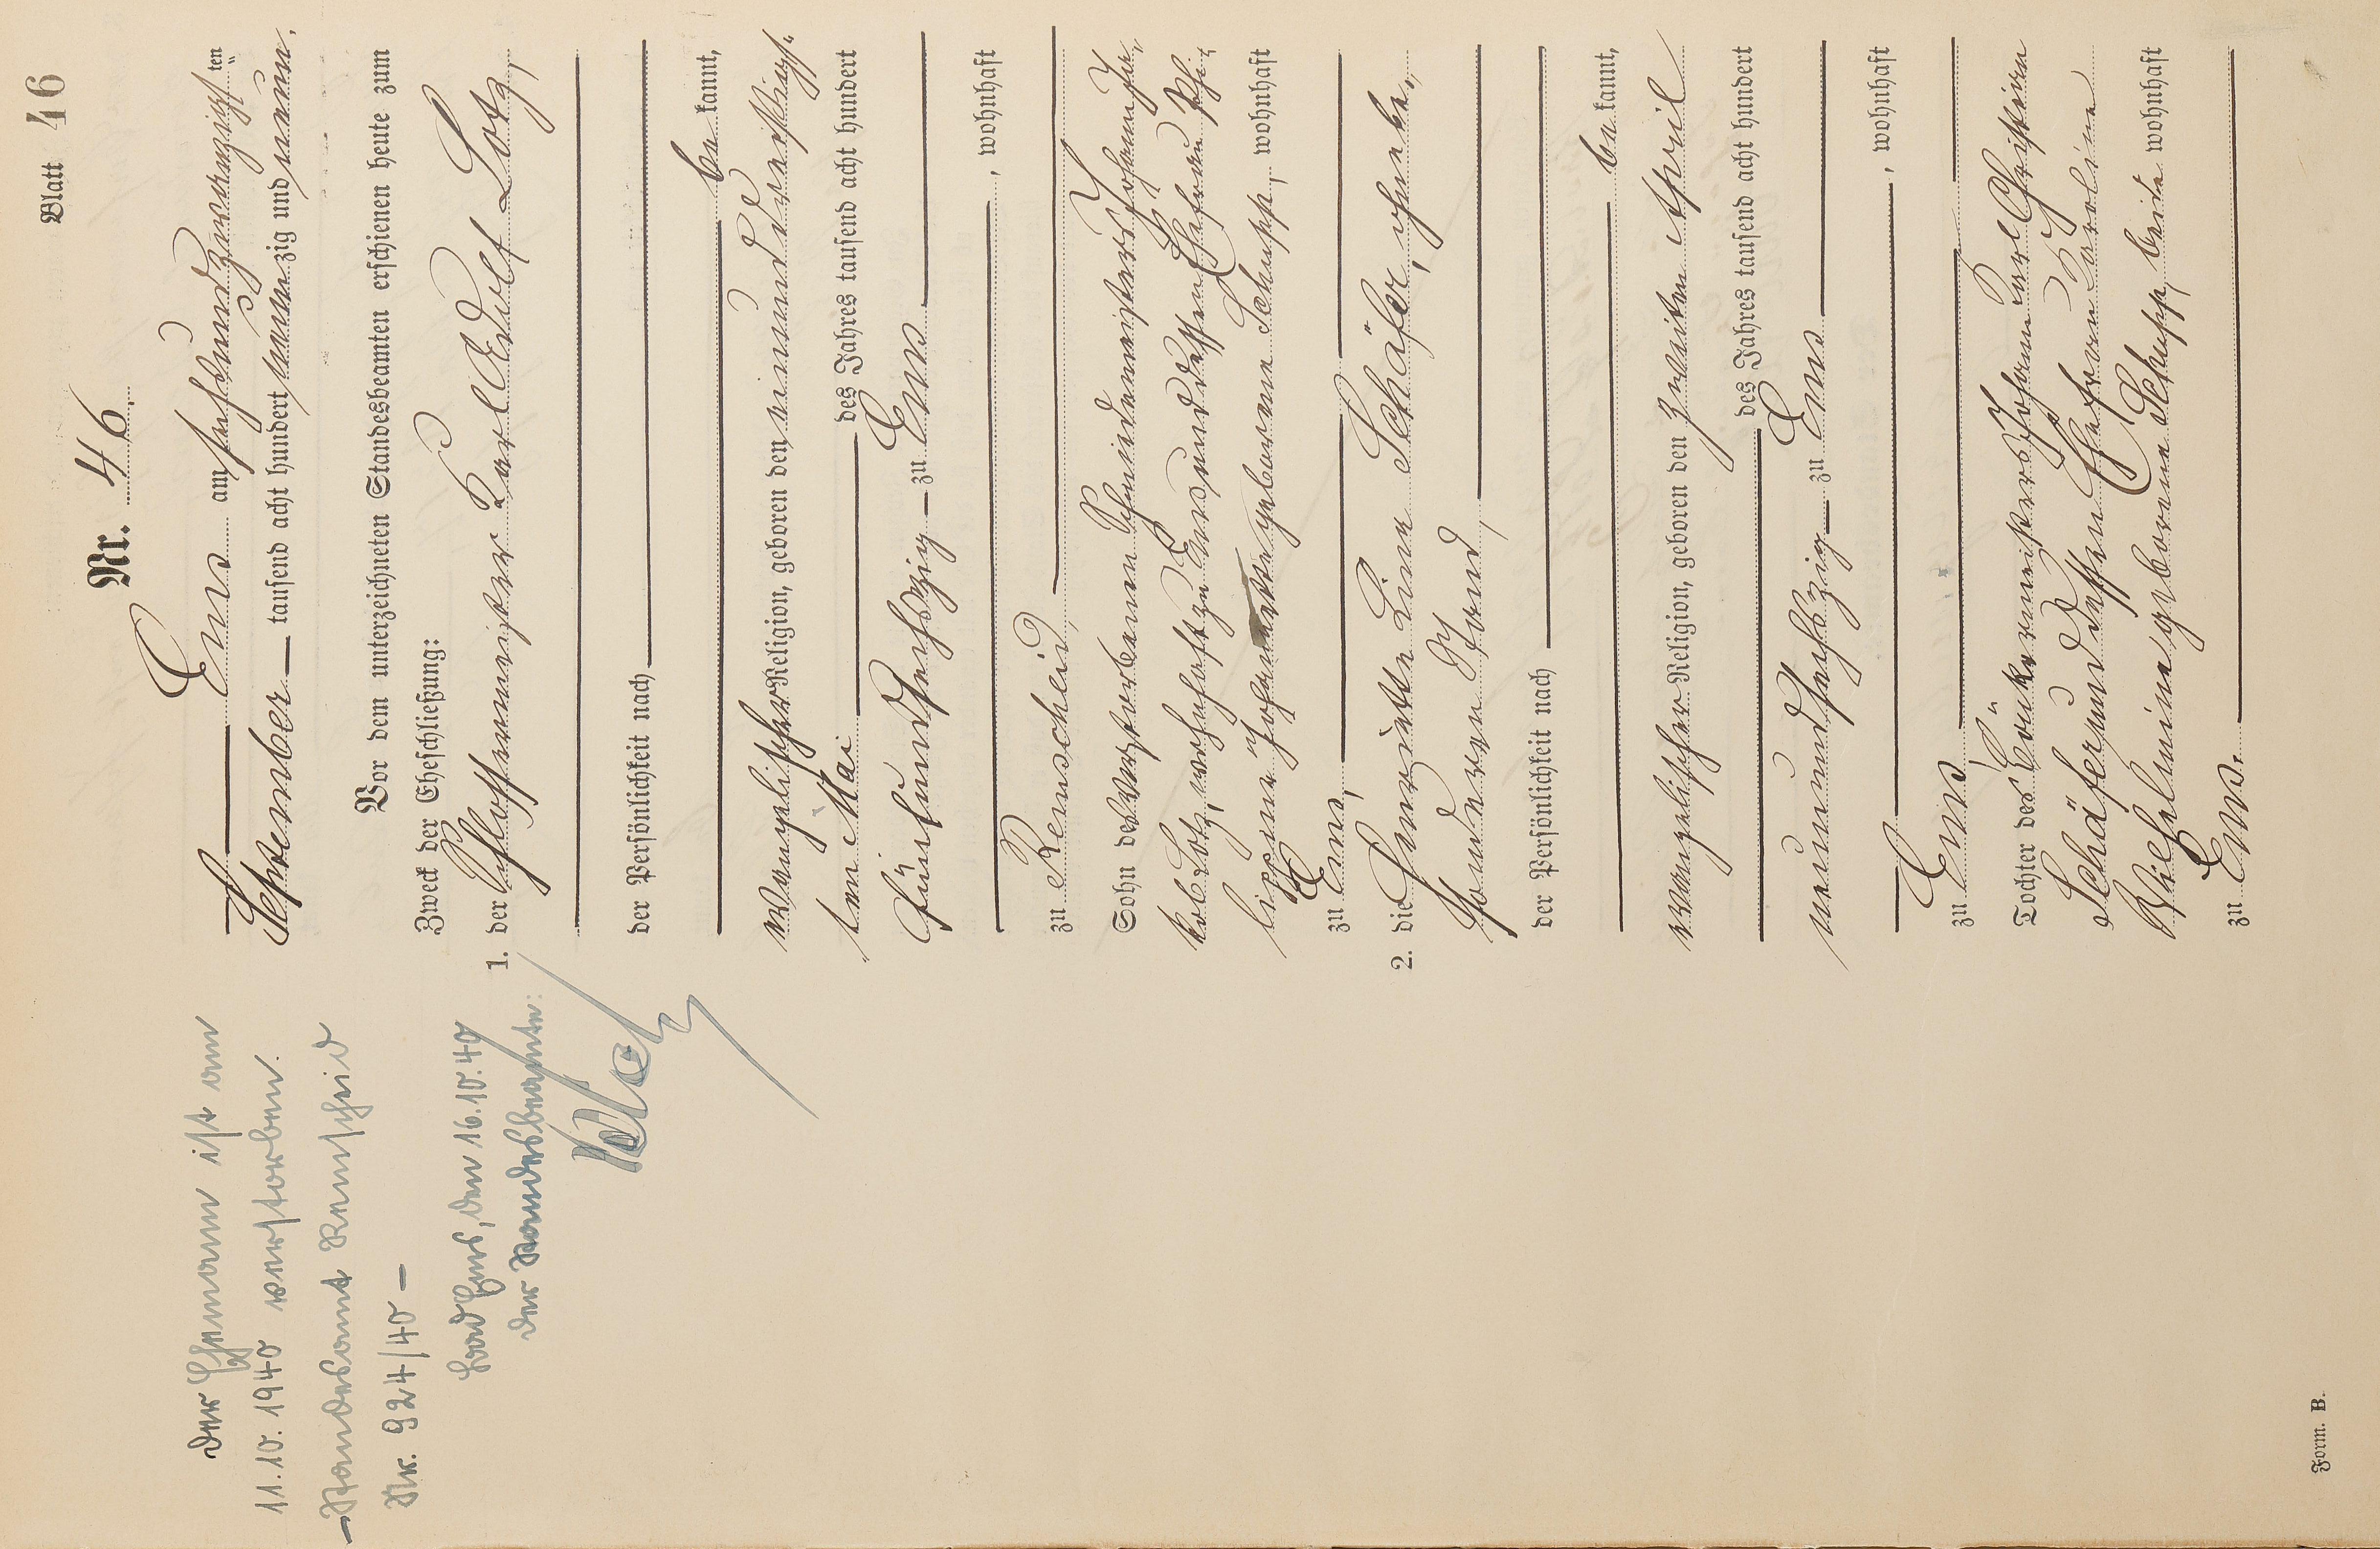 Blatt 46
Nr. 46.
Ems am fünfundzwanzigsten
September tausend acht hundert neunzig und neun.
Vor dem unterzeichneten Standesbeamten erschienen heute zum
Zweck der Eheschließung:
1. der Schlossermeister Karl Adolf Lotz,
der Persönlichkeit nach
be kannt,
evangelischer Religion, geboren den einunddreißigs-
ten Mai des Jahres tausend acht hundert
fünfundsechszig zu Ems
, wohnhaft
zu Remscheid,
Sohn des verstorbenen Schneidermeisters Johann Ja-
kob Lotz, wohnhaft zu Ems, und dessen Ehefrau Phi-
lippine Johannette geborene Schupp, wohnhaft
zu Ems,
2. die Henriette Line Schäfer, ohne be-
sonderen Stand,
der Persönlichkeit nach
be kannt,
evangelischer Religion, geboren den zweiten April
des Jahres tausend acht hundert
neunundsechszig zu Ems
, wohnhaft
zu Ems,
Tochter des Bäckermeisters Johann Karl Christian
Schäfer und dessen Ehefrau Karoline
Wilhelmine geborene Schupp, beide wohnhaft
zu Ems.
Der Ehemann ist am
11.10.1940 verstorben.
– Standesamt Remscheid
Nr. 924/40 –
Bad Ems, den 16.10.40
Der Standesbeamte:
Form. B.